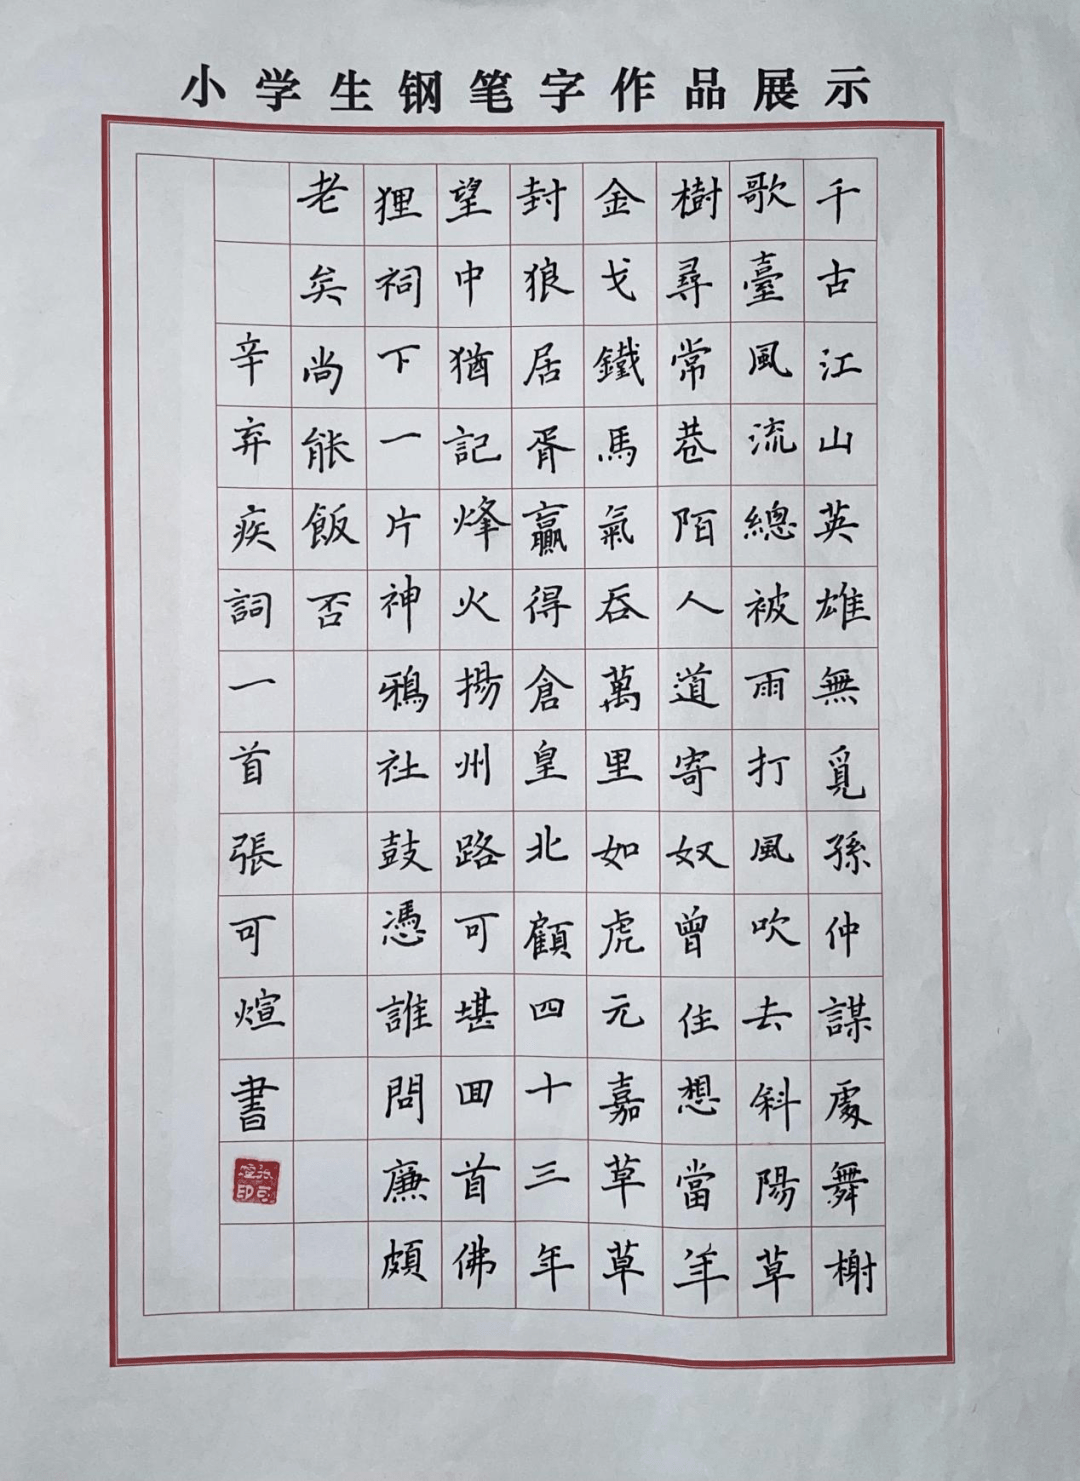 小学生钢笔字作品展示
千古江山英雄無覓孫仲謀處舞榭
歌臺風流總被雨打風吹去斜陽草
樹尋常巷陌人道寄奴曾住想當年
金戈鐵馬氣吞萬里如虎元嘉草草
封狼居胥贏得倉皇北顧四十三年
望中猶記烽火揚州路可堪回首佛
狸祠下一片神鴉社鼓憑誰問廉頗
老矣尚能飯否
辛弃疾詞一首張可煊書
張可煊印